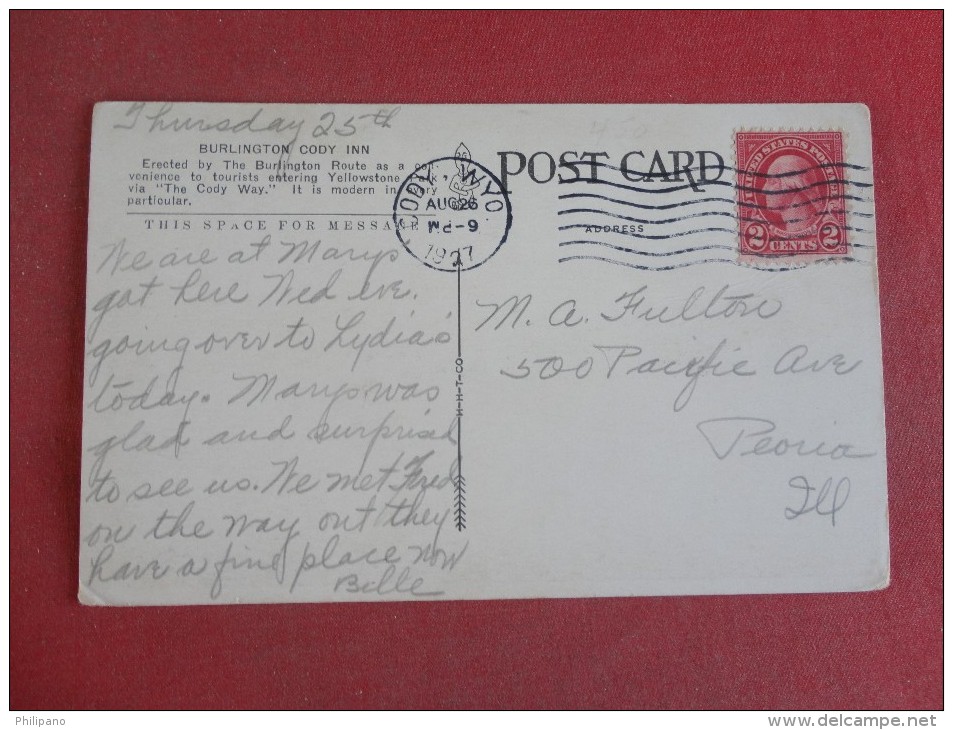 Thursday 25th
BURLINGTON CODY INN
Erected by The Burlington Route as a con-
venience to tourists entering Yellowstone Park
via "The Cody Way." It is modern in every
particular.
THIS SPACE FOR MESSAGE
We are at Marys
got here Wed eve.
going over to Lydia's
today. Marys was
glad and surprised
to see us. We met Fred
on the way out they
have a fine place now
Belle
H-H-T-CO
CODY, WYO
AUG 26
9-PM
1927
POST CARD
ADDRESS
UNITED STATES POSTAGE
2 CENTS 2
M. A. Fulton
500 Pacific Ave
Peoria
Ill
Philipano
www.delcampe.net